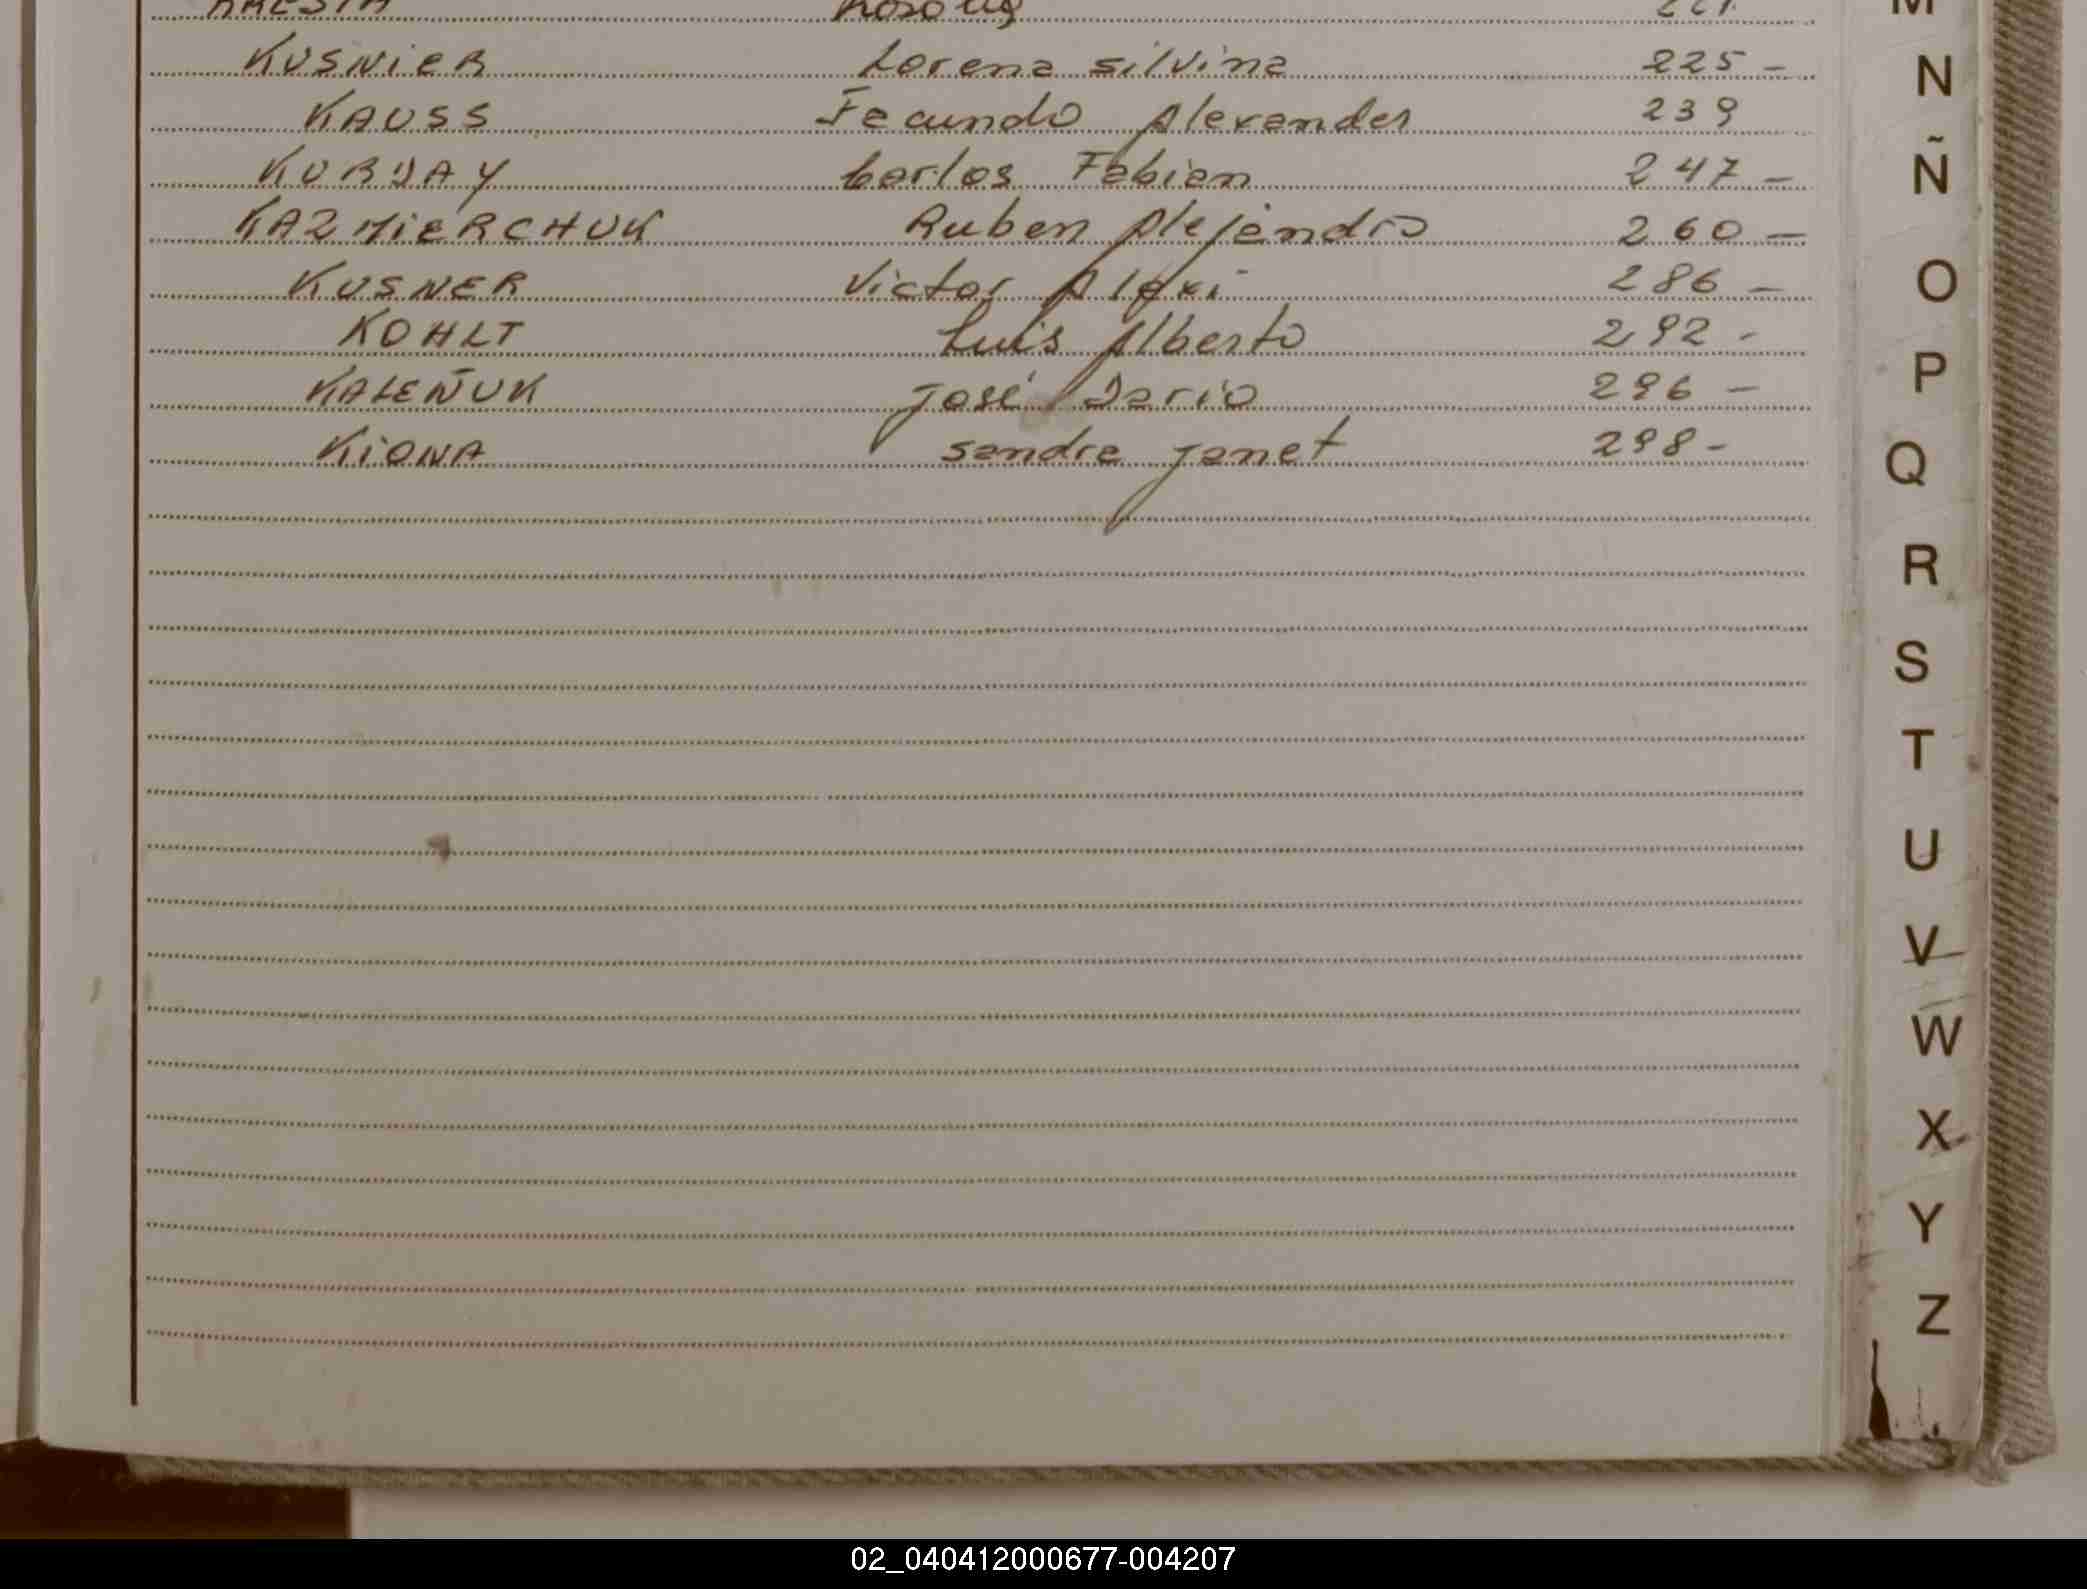 KUSNiER Lorena silvina 225 -
KAUSS Facundo Alexander 239
KURDAY Carlos Fabian 247 -
KAZMiERCHUK Ruben Alejandro 260 -
KUSNER Victor Alexi 286 -
KOHLT Luis Alberto 292 -
KALEÑUK José Dario 296 -
KiONA sandra Janet 298 -
M
N
Ñ
O
P
Q
R
S
T
U
V
W
X
Y
Z
02_040412000677-004207